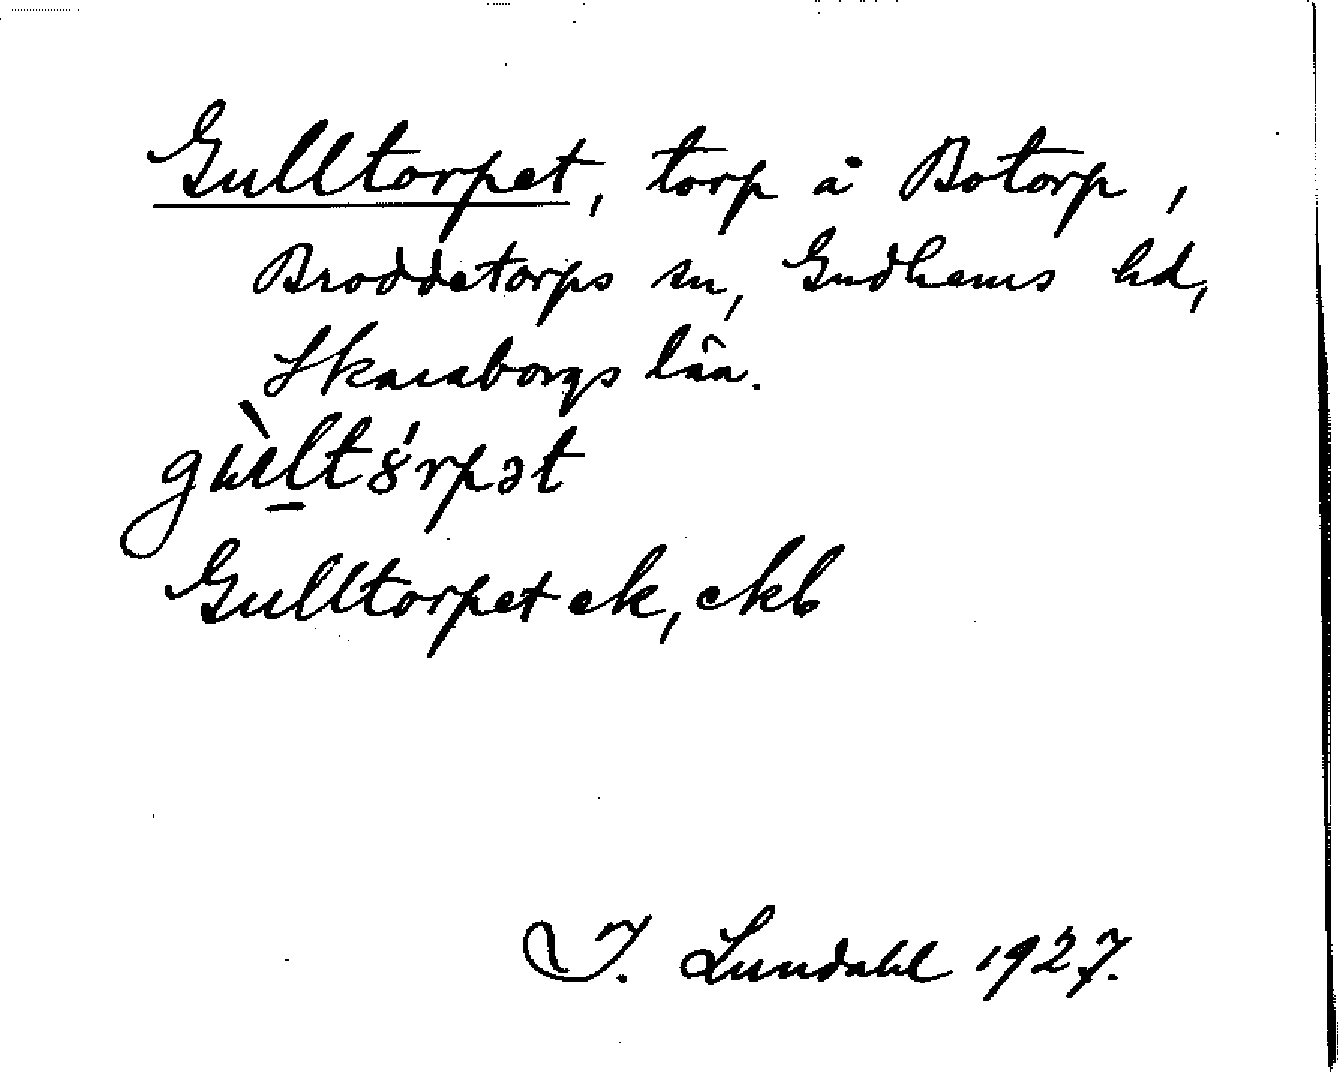 Gulltorpet, torp å Botorp,
Broddetorps sn, Gudhems hd,
Skaraborgs län.
gùl̠t8́rpət
Gulltorpet ek, ekb
I. Lundahl 1927.